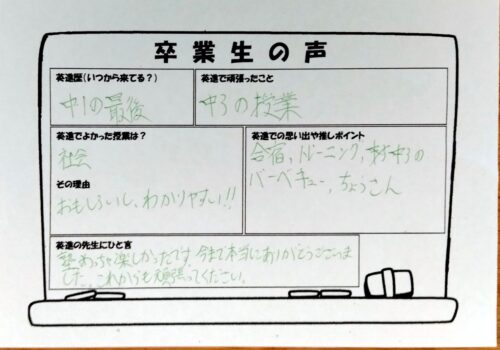 卒業生の声
英進歴(いつから来てる?)
中1の最後
英進で頑張ったこと
中3の授業
英進でよかった授業は?
社会
その理由
おもしろいし、わかりやすい!!
英進での思い出や推しポイント
合宿,トレーニング,新中3の
バーベキュー,ちょうこん
英進の先生にひと言
塾めっちゃ楽しかったです。今まで本当にありがとうございま
した。これからも頑張ってください。